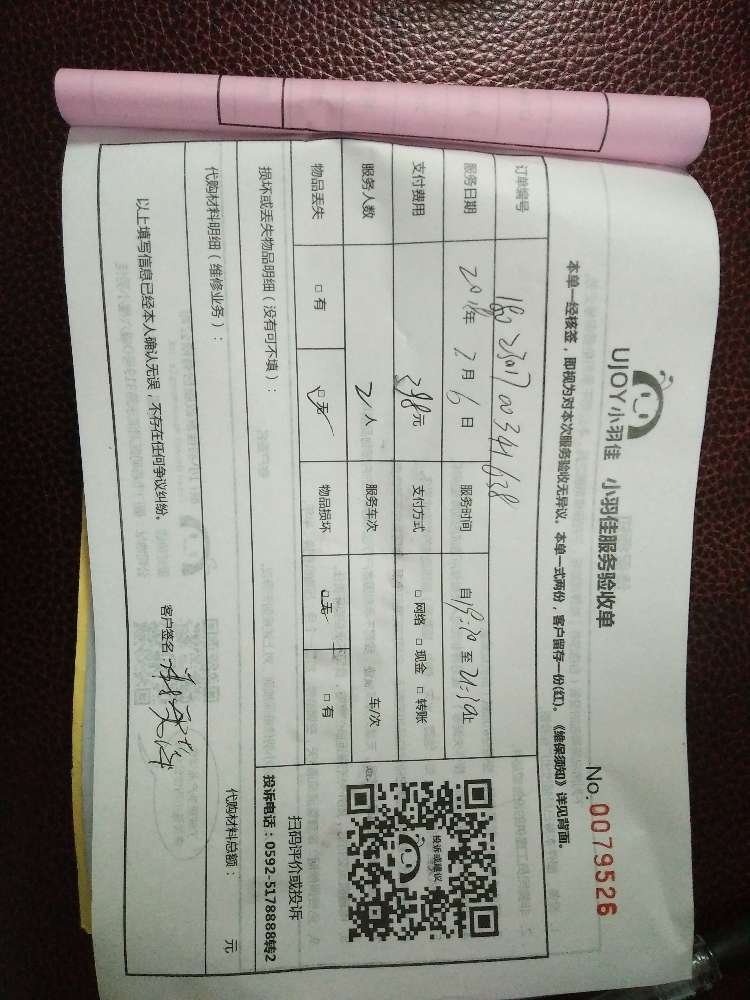 UJOY小羽佳 小羽佳服务验收单
No. 0079526
本单一经核签，即视为对本次服务验收无异议。本单一式两份，客户留存一份(红)。《维保须知》详见背面。
订单编号
服务日期 2018年 2月 6日 服务时间 自19:20至21:10止
支付费用 298元 支付方式 □ 网络 □ 现金 □ 转账
服务人数 2人 服务车次 车/次
物品丢失 □ 有 □ 无 物品损坏 □ 无 □ 有
投诉或建议
扫码评价或投诉
投诉电话：0592-5178888转2
损坏或丢失物品明细（没有可不填）：
代购材料明细（维修业务）： 代购材料总额： 元
以上填写信息已经本人确认无误，不存在任何争议纠纷。
客户签名：